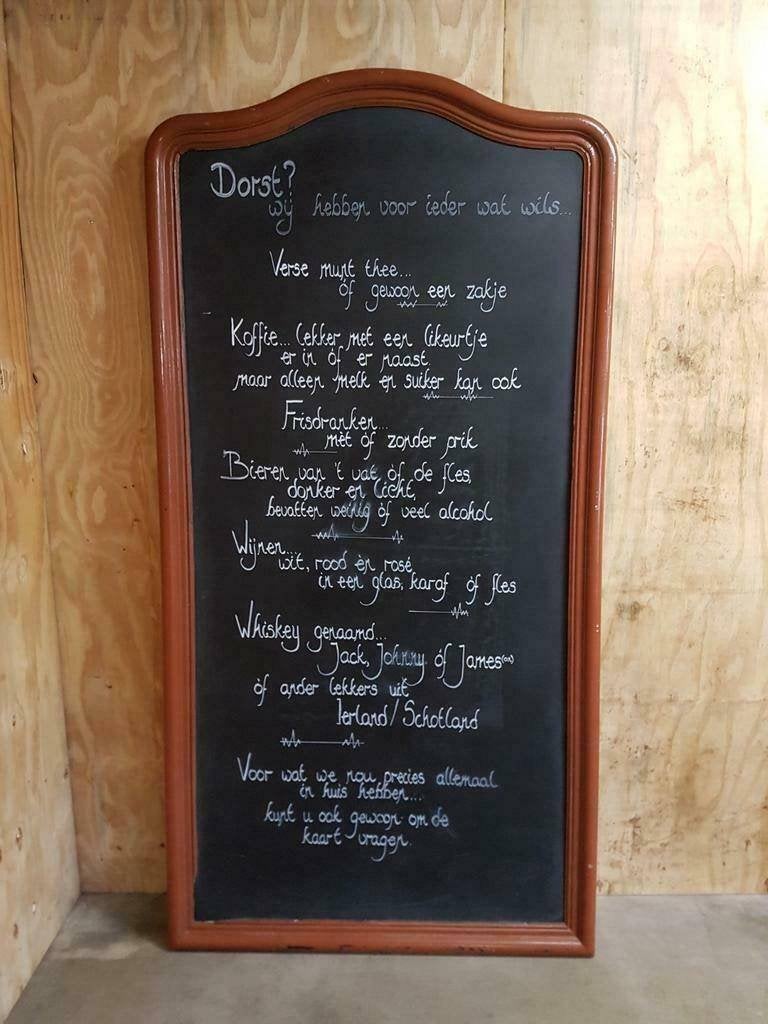 Dorst?
wij hebben voor ieder wat wils...
Verse munt thee...
óf gewoon een zakje
Koffie... lekker met een likeurtje
er in óf er naast
maar alleen melk en suiker kan ook
Frisdranken...
mèt óf zonder prik
Bieren van 't vat óf de fles,
donker en licht,
bevatten weinig óf veel alcohol
Wijnen...
wit, rood èn rosé
in een glas, karaf óf fles
Whiskey genaamd...
Jack, Johnny óf James(on)
óf ander lekkers uit
Ierland/Schotland
Voor wat we nou precies allemaal
in huis hebben...
kunt u ook gewoon om de
kaart vragen.